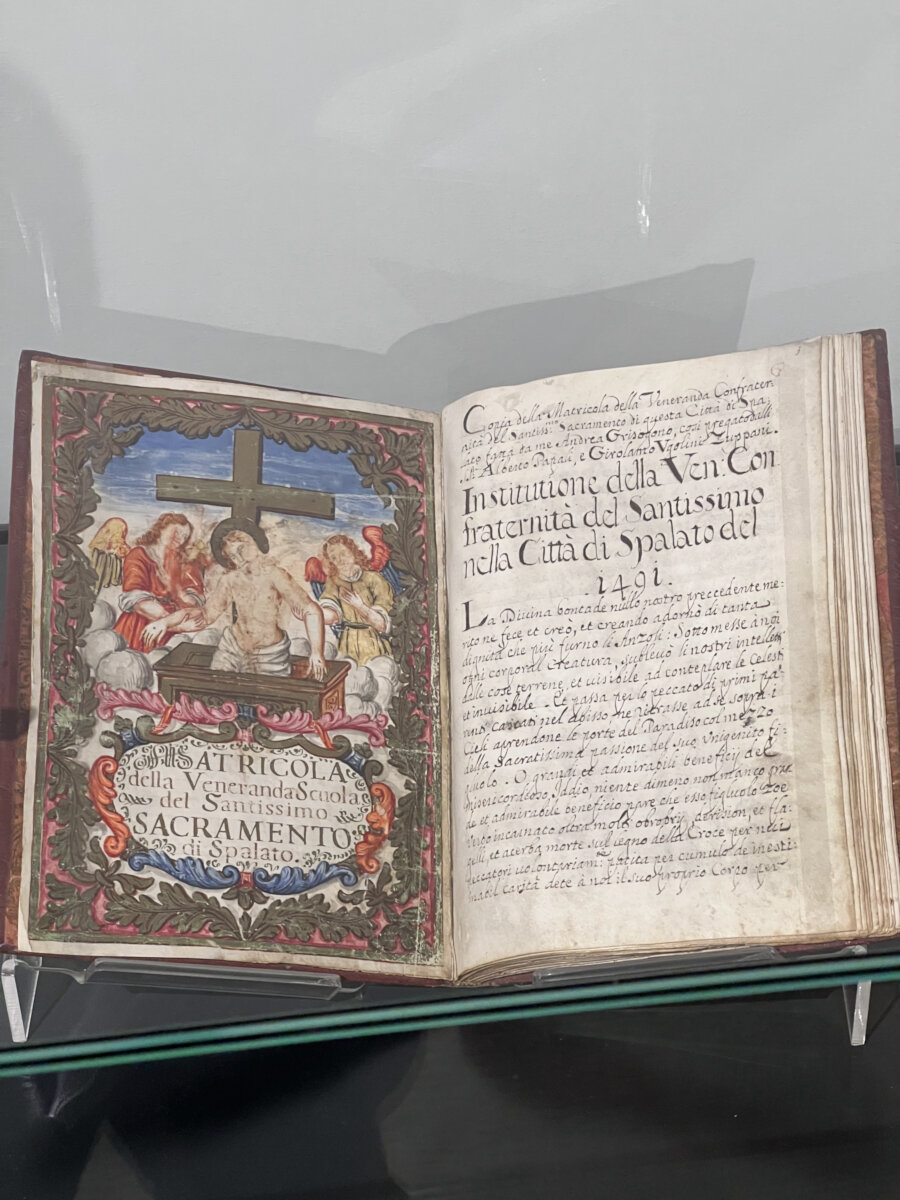 MATRICOLA
della Veneranda Scuola
del Santissimo
SACRAMENTO
di Spalato.
Copia della Matricola della Veneranda Confrater
nità del Santiss.mo Sacramento di questa Città di Spa:
lato fatta da me Andrea Grisogono, così pregato dalli
SS.ri Alberto Papali, e Girolamo Ugolino Zuppani.
Institutione della Ven: Con
fraternità del Santissimo
nella Città di Spalato del
.1491.
La Divina bontade nullo nostro preccedente me:
rito ne fece, et creò, et creando adornò di tanta
dignità che più furno li Anzoli: Sottomesse à noi
ogni corporal Creatura, sublevò li nostri intelletti
dalle cose terrene, et visibile ad contemplare le Celesti
et invisibile. Et passa per lo peccato di primi pa:
renti cascati nel abisso ne ritrasse ad se sopra i
Cieli aprendone le porte del Paradiso col mezzo
della Sacratissima passione del suo Unigenito fi:
gliuolo. O grandi et admirabili beneficij del
misericordioso Iddio, niente dimeno non manco gran
de et admirabile beneficio pare che esso figluolo
Verbo incarnato oltra molti obropry, derision, et fla:
gelli, et acerba morte sul legno della Croce per noi
peccatori per cumulo de inesti:
mabil carità dete à noi il suo proprio Corpo per